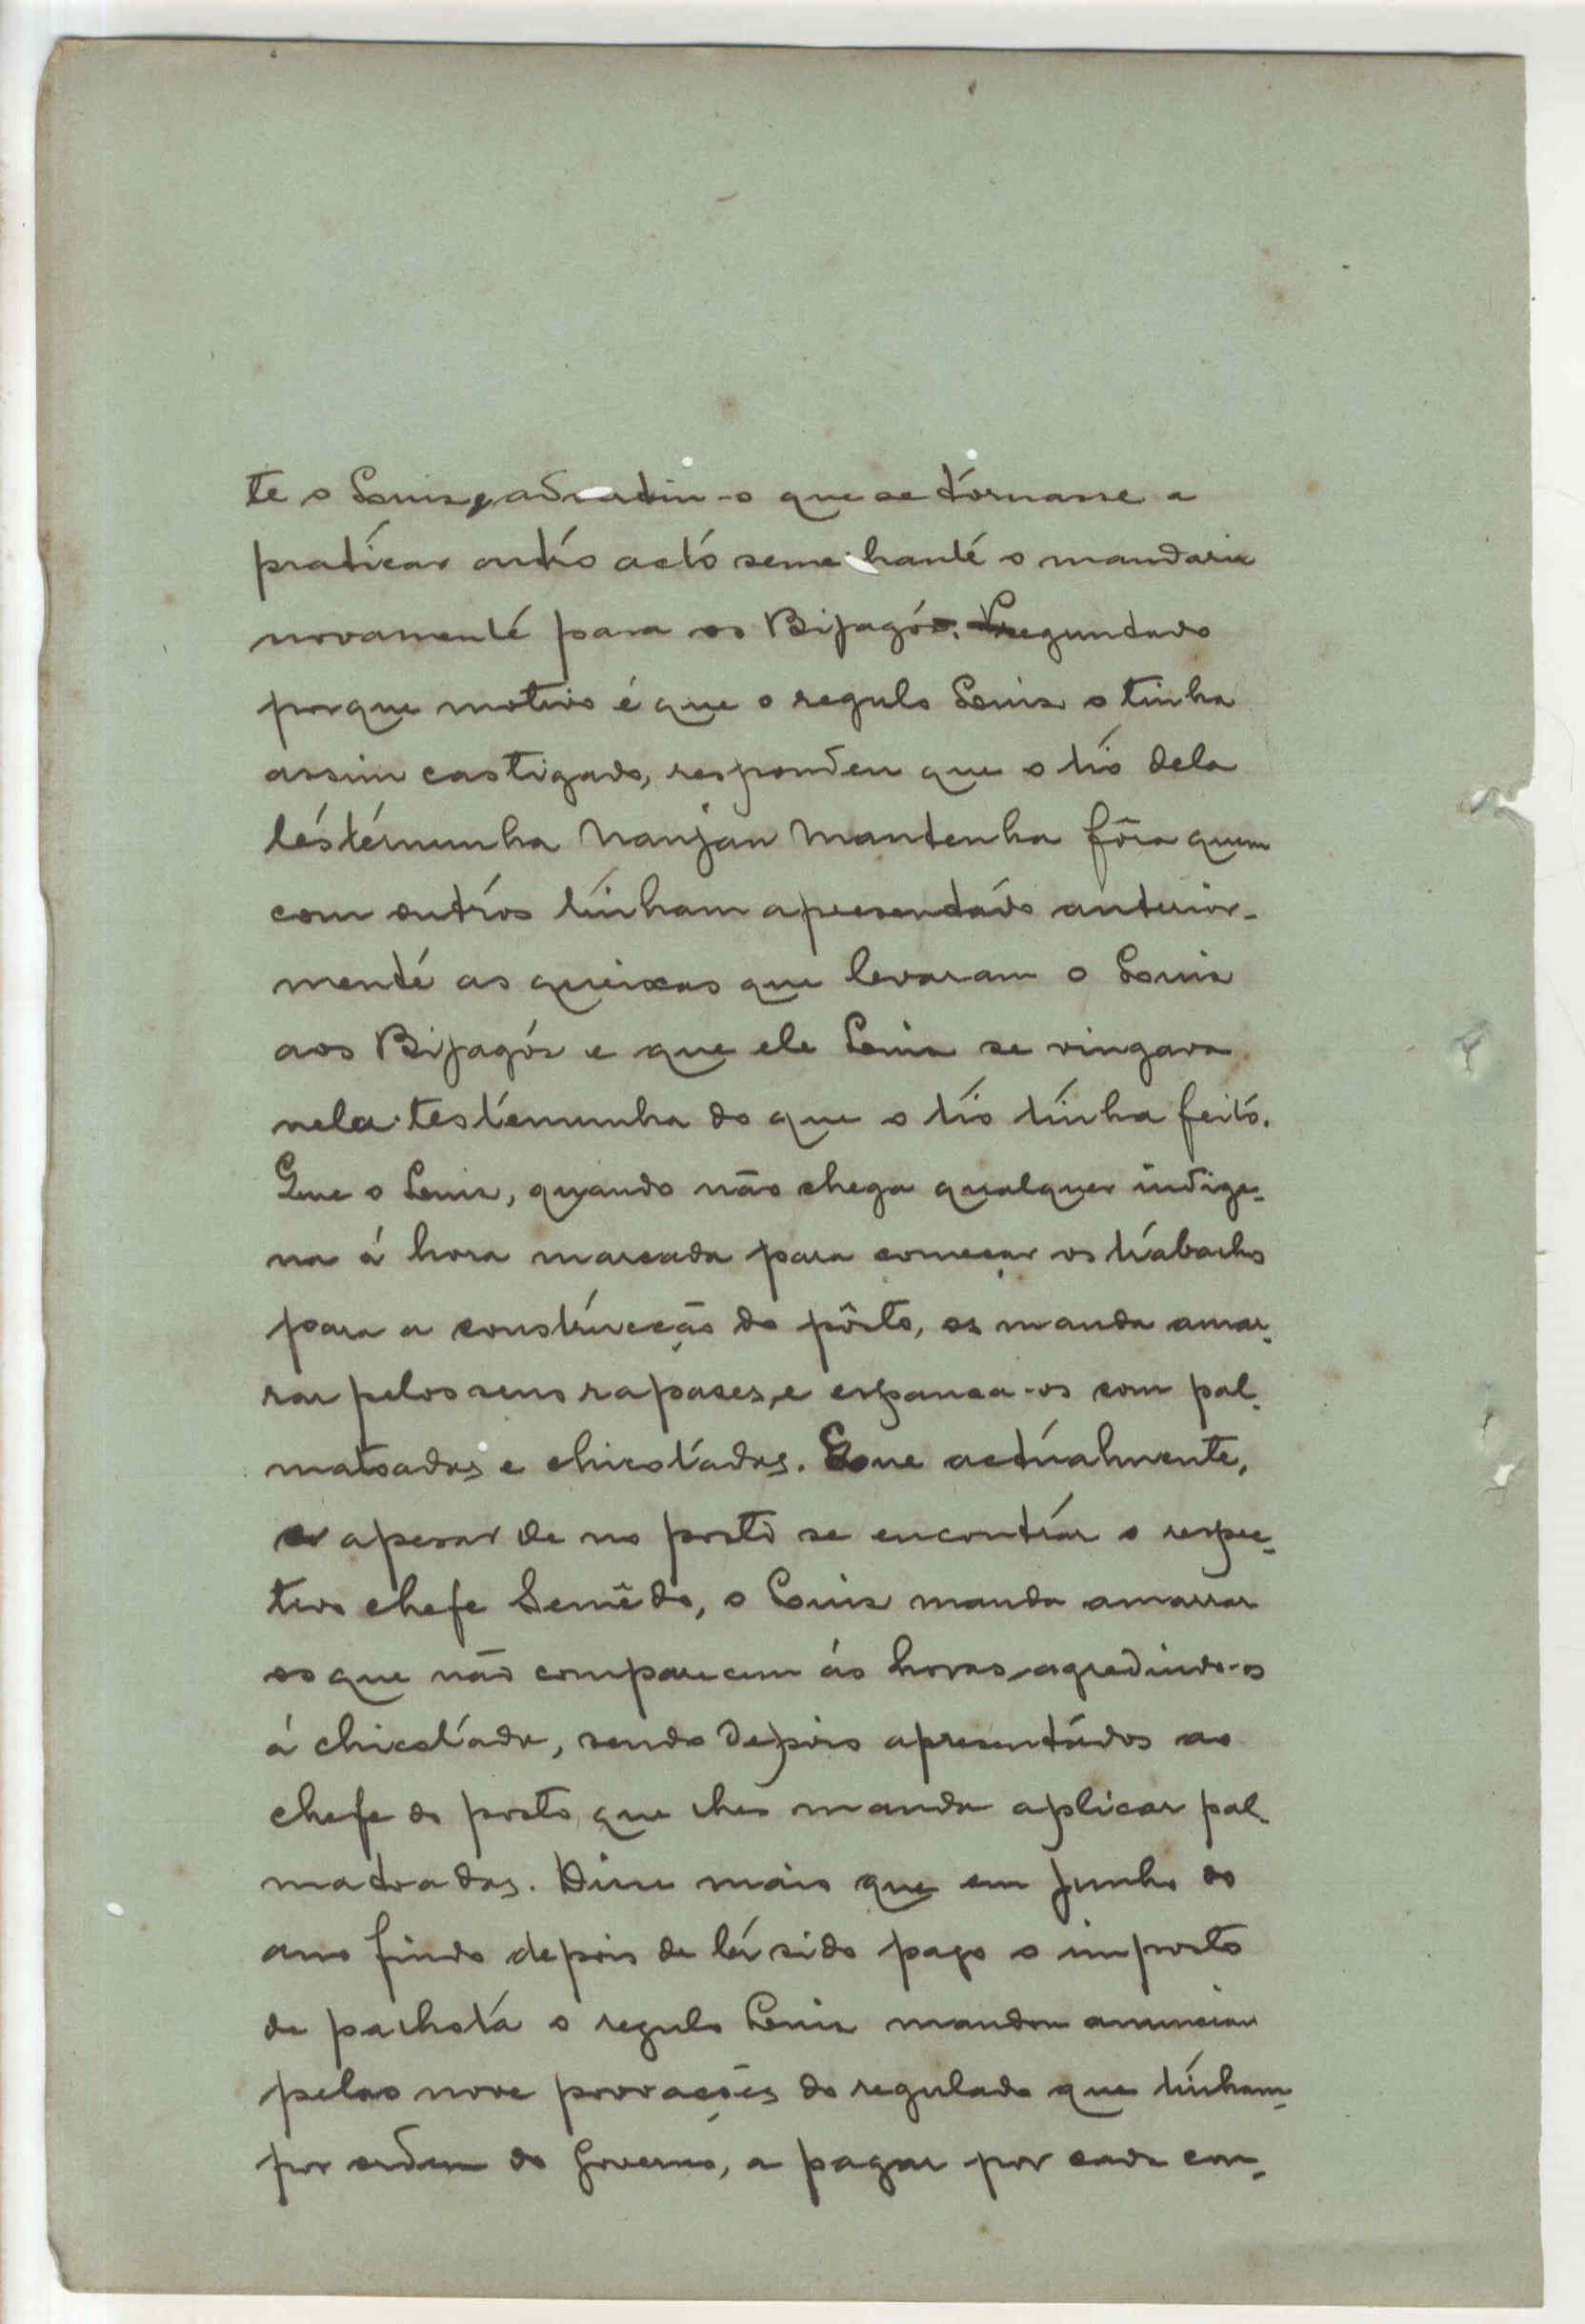 te o Luis, advertin-o que se tornasse a
praticar outro acto semelhante o mandaria
novamente para os Bijagós. Preguntado
porque motivo é que o regulo Luis o tinha
assim castigado, respondeu que o tio dela
testemunha Nanjau Mantenha fôra quem
com outros tinham apresentado anterior-
mente as queixas que levaram o Luis
aos Bijagós e que ele Luis se vingava
nela testemunha do que o tio tinha feito.
Que o Luis, quando não chega qualquer indige-
na á hora marcada para começar os trabalhos
para a construcção do pôsto, os manda amar-
rar pelos seus rapases, e espanca-os com pal-
matoadas e chicotadas. Que actualmente,
apesar de no posto se encontrar o respe-
tivo chefe Semêdo, o Luis manda amarrar
os que não comparecem ás horas agredindo-os
á chicotada, sendo depois apresentados ao
chefe do posto, que lhes manda aplicar pal-
matoadas. Disse mais que em Junho do
ano findo depois de ter sido pago o imposto
de palhota o regulo Luis mandou anunciar
pelas nove povoações do regulado que tinham,
por ordem do Governo, a pagar por cada con-